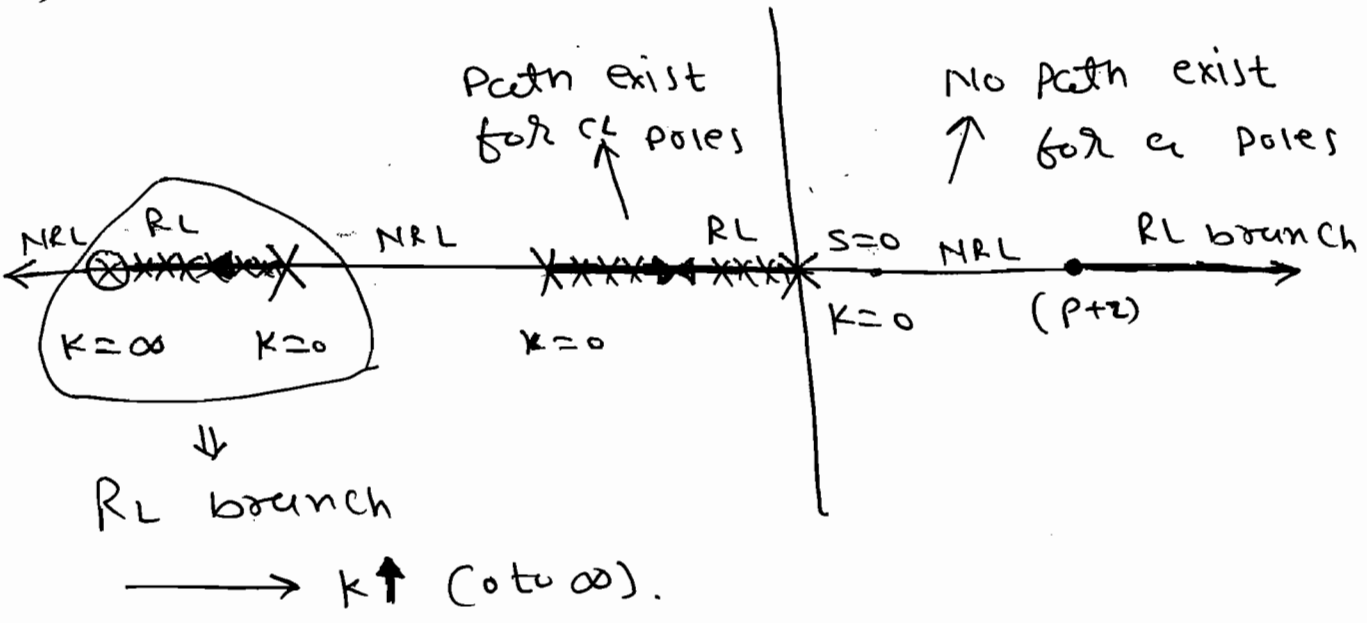 Path exist
for CL poles
No Path exist
for CL Poles
NRL
RL
NRL
RL
S=0
NRL
RL branch
K=∞
K=0
K=0
K=0
(P+z)
⇓
RL branch
⟶ K↑ (0 to ∞).